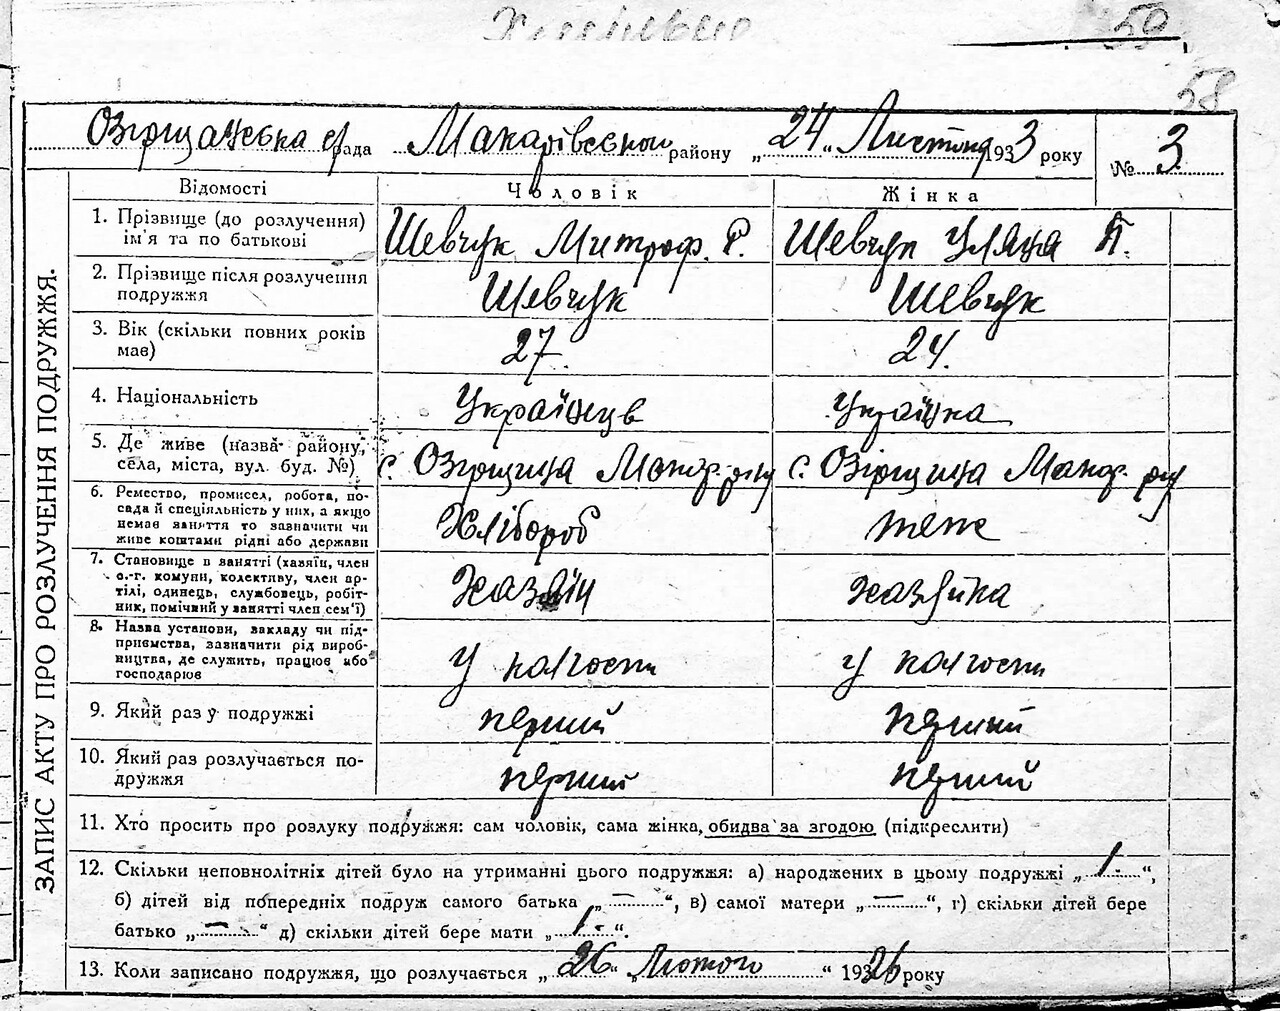 59
58
Озірщанська с/рада Макарівського району „24“ Листопад 1933 року № 3
ЗАПИС АКТУ ПРО РОЗЛУЧЕННЯ ПОДРУЖЖЯ.
Відомості Чоловік Жінка
1. Прізвище (до розлучення) ім'я та по батькові Шевчук Митроф. Р. Шевчук Уляна П.
2. Прізвище після розлучення подружжя Шевчук Шевчук
3. Вік (скільки повних років має) 27 24.
4. Національність Українець Українка
5. Де живе (назва району, села, міста, вул. буд. №) с. Озірщина Макар. р-ну с. Озірщина Макар. р-ну
6. Ремество, промисел, робота, посада й спеціяльність у них, а якщо немає заняття то зазначити чи живе коштами рідні або держави Хлібороб теж
7. Становище в занятті (хазяїн, член с.-г. комуни, колективу, член артілі, одинець, службовець, робітник, помічний у занятті член сем'ї) Хазяїн хазяйка
8. Назва установи, закладу чи підприємства, зазначити рід виробництва, де служить, працює або господарює у колгоспи у колгоспи
9. Який раз у подружжі перший перший
10. Який раз розлучається подружжя перший перший
11. Хто просить про розлуку подружжя: сам чоловік, сама жінка, обидва за згодою (підкреслити)
12. Скільки неповнолітніх дітей було на утриманні цього подружжя: а) народжених в цьому подружжі „1-“,
б) дітей від попередніх подруж самого батька „—“, в) самої матери „—“, г) скільки дітей бере
батько „—“ д) скільки дітей бере мати „1-“.
13. Коли записано подружжя, що розлучається „26“ „Лютого“ 19326 року